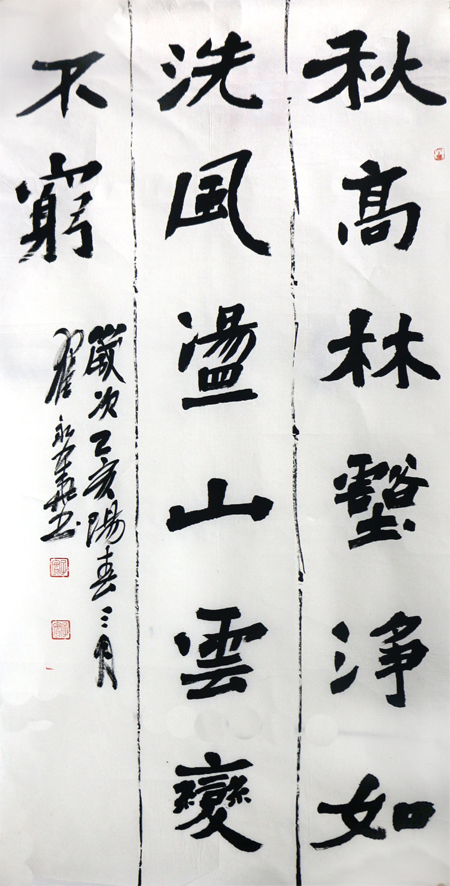 秋高林壑淨如
洗風盪山雲變
不窮
歲次己亥陽春三月
翟永華書